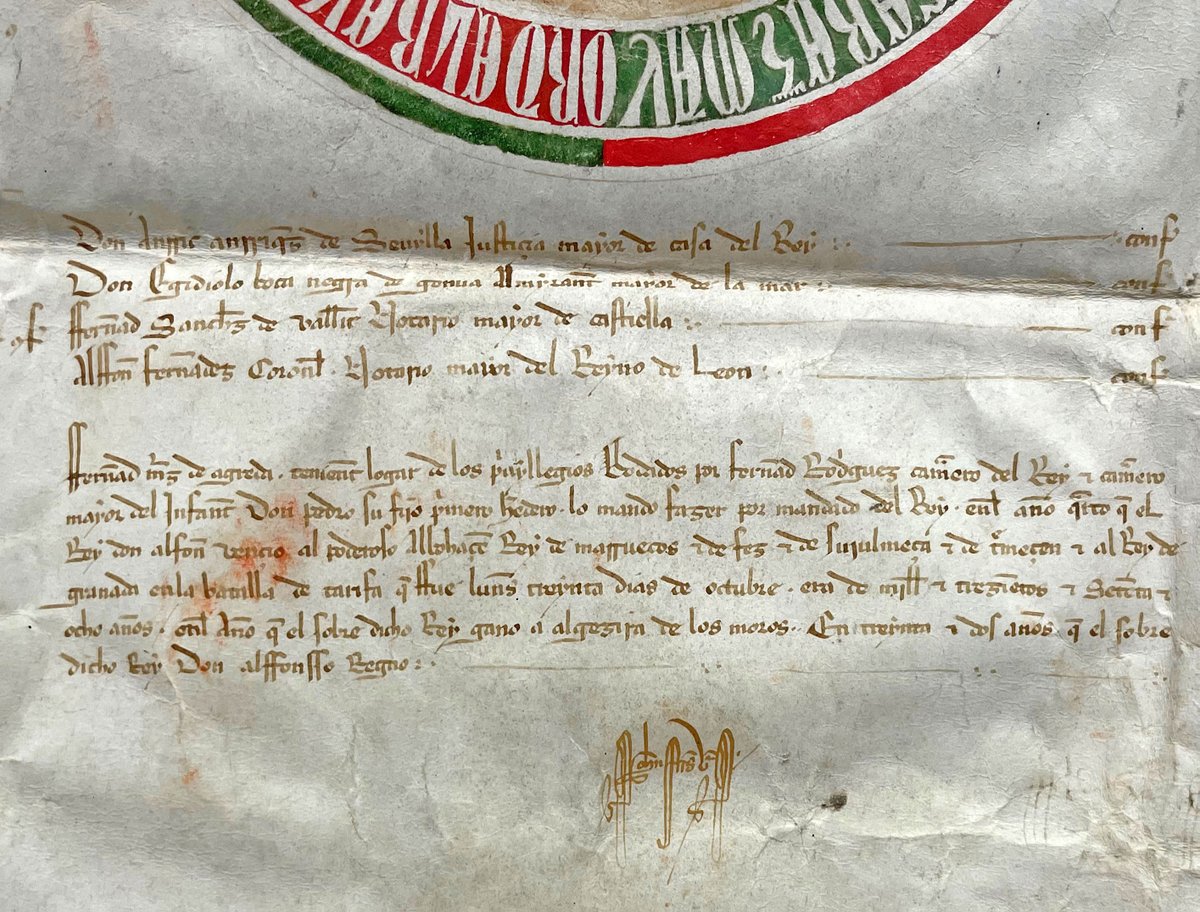 Don anrric anrriq̃s de Seuylla Justiçia mayor de casa del Rey conf
Don Egidiolo boca negra de genua Almyrant̃ mayor de la mar conf
fferrãd Sanch̃s de vallit Notario mayor de castiella conf
Alffon ferrãdes Coronl̃ Notario maior del Reyno de Leon conf
fferrãd mr̃s de agreda tenient̃ logar de los p'uyllegios Rodados por ferrãd Rodriguez cam̃ero del Rey τ cam̃ero
mayor del Infant̃ Don pedro su fijo p'mero h̃edero lo mando fazer por mandado del Rey enl̃ año q̃rto q̃ el
Rey don alfon vençio al poderoso Alboaçẽ Rey de marruecos τ de fez τ de sujulmeça τ de tremeçen τ al Rey de
granada enla batalla de tarifa q̃ ffue lunẽs treynta dias de octubre era de mill τ trezientos τ Setẽta τ
ocho años enl̃ Año q̃ el sobre dicho Rey gano a algezira de los moros En treynta τ dos años q̃ el sobre
dicho Rey Don alffonsso Regno